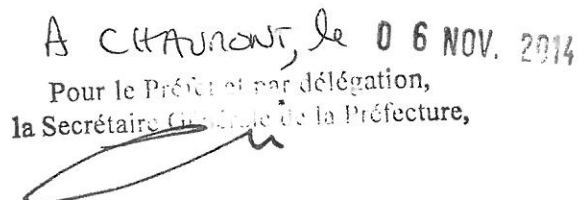 A CHAUMONT, le 06 NOV. 2014
Pour le Préfet et par délégation,
la Secrétaire Générale de la Préfecture,